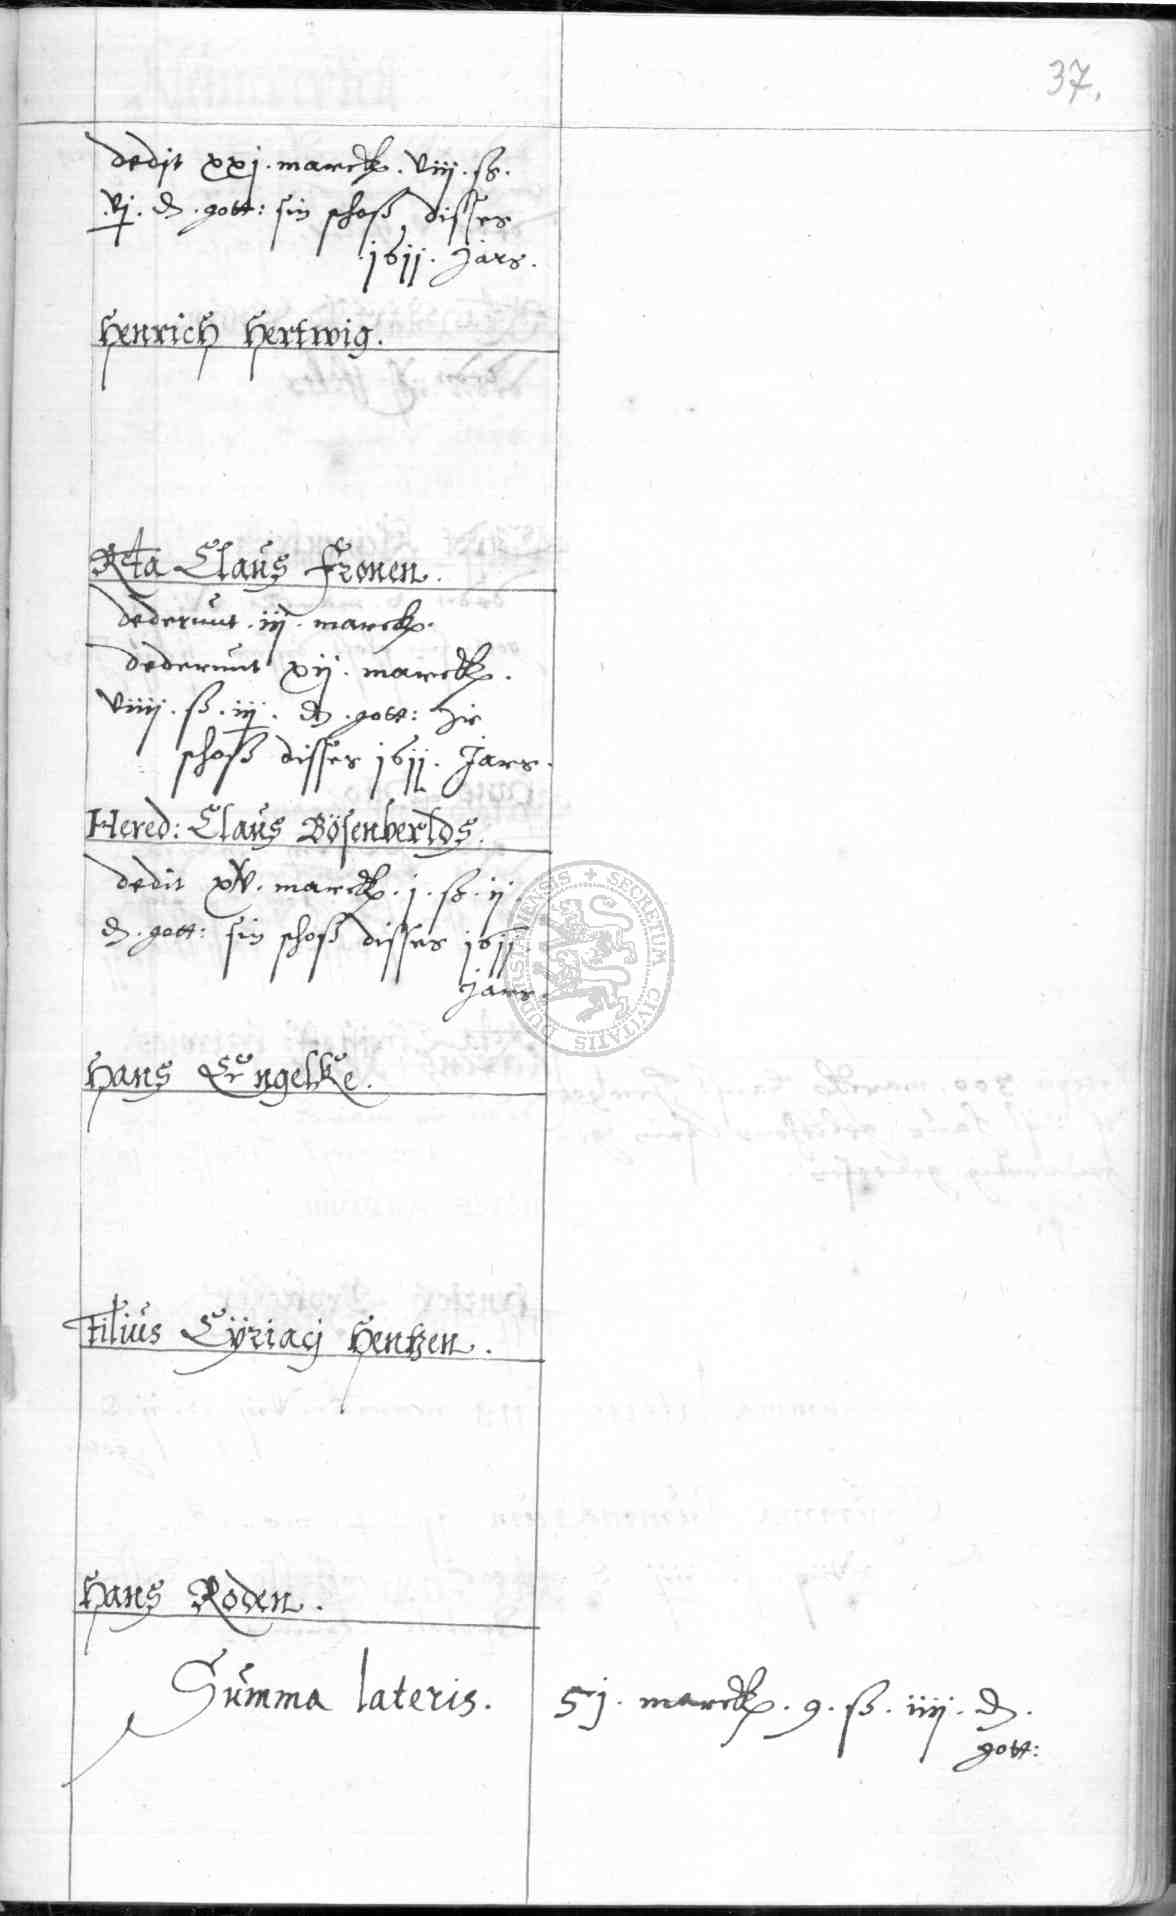 37.
dedit xxj. marck. viij. ß.
.vj. d. gott: sin schoß disses
.1611. Jars.
Henrich Hertwig.
Rta Claus Fronen.
dederunt .iij. marck.
dederunt xij. marck.
viiij. ß. iij. d. gott: Jr
schoß disses 1611. Jars.
Hered: Claus Bösenbertds.
dedit xv. marck. j. ß. ij.
d. gott: sin schoß disses 1611.
Jars.
Hans Engelke.
Filius Cÿriacj Hentzen.
Hans Roden.
Summa lateris. 51. marck. 9. ß. iiij. d.
gott:
SECRETUM CIVITATIS DUDERSTADIENSIS